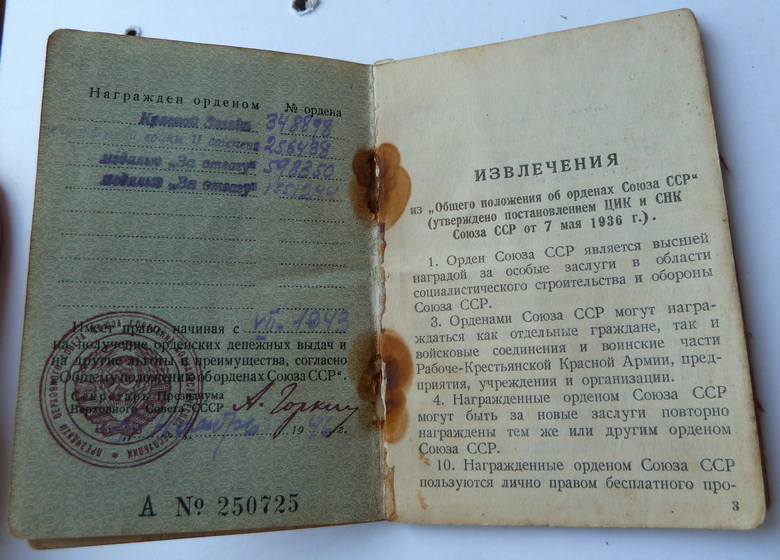 Награжден орденом № ордена
Красной Звезды 348898
войны II степени 256438
медалью „За отвагу“ 598350
медалью „За отвагу“
Имеет право, начиная с VII. 1943
на получение орденских денежных выдач и
на другие льготы и преимущества, согласно
„Общему положению об орденах Союза ССР“.
Секретарь Президиума
Верховного Совета СССР А. Горкин
19 г.
А № 250725
ИЗВЛЕЧЕНИЯ
из „Общего положения об орденах Союза ССР“
(утверждено постановлением ЦИК и СНК
Союза ССР от 7 мая 1936 г.).
1. Орден Союза ССР является высшей
наградой за особые заслуги в области
социалистического строительства и обороны
Союза ССР.
3. Орденами Союза ССР могут награ-
ждаться как отдельные граждане, так и
войсковые соединения и воинские части
Рабоче-Крестьянской Красной Армии, пред-
приятия, учреждения и организации.
4. Награжденные орденом Союза ССР
могут быть за новые заслуги повторно
награждены тем же или другим орденом
Союза ССР.
10. Награжденные орденом Союза ССР
пользуются лично правом бесплатного про-
3